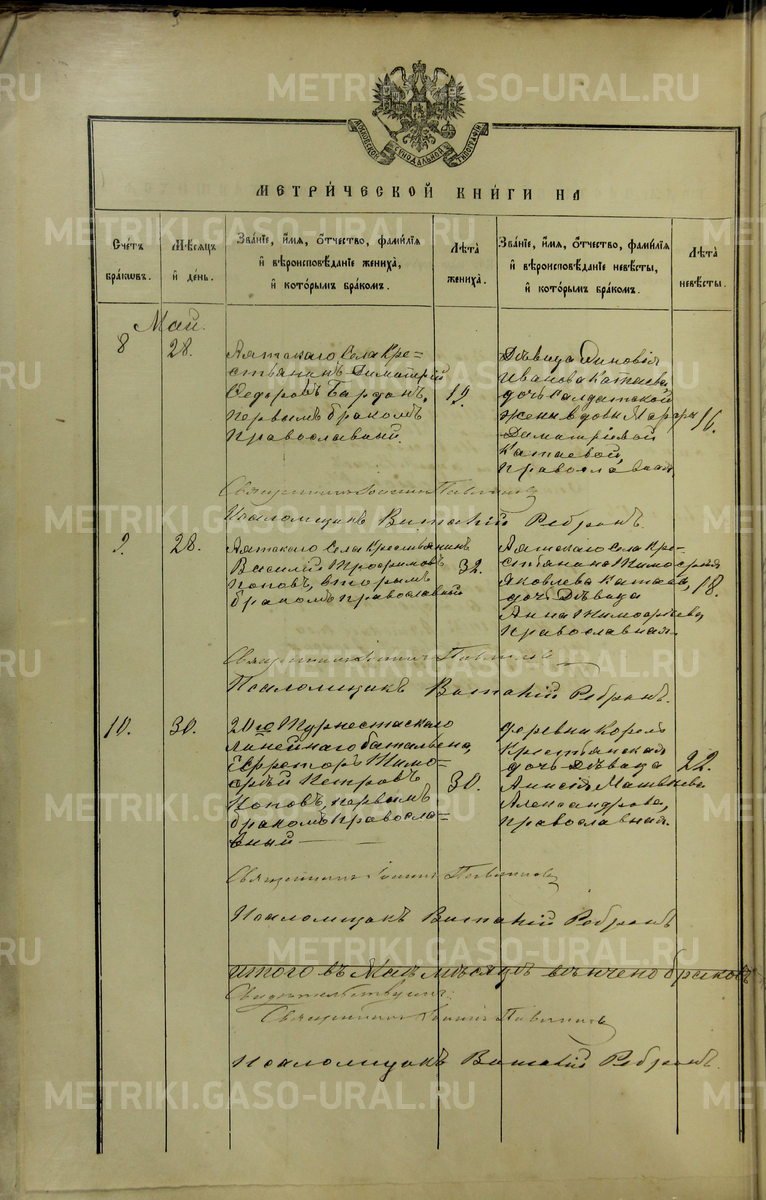 METRIKI.GASO-URAL.RU
МОСКОВСКОЙ СѴНОДАЛЬНОЙ ТИПОГРАФІИ
МЕТРИ́ЧЕСКОЙ КНИ́ГИ НА
Сче́тъ бра́кωвъ.
Мѣ́сѧцъ и҆ де́нь.
Зва́нїе, и҆́мѧ, ѻ҆́тчество, фамѝлїѧ и҆ вѣроисповѣ́данїе жениха̀, и҆ кото́рымъ бра́комъ.
Лѣ́та жениха̀.
Зва́нїе, и҆́мѧ, ѻ҆́тчество, фамѝлїѧ и҆ вѣроисповѣ́данїе невѣ́сты, и҆ кото́рымъ бра́комъ.
Лѣ́та невѣ́сты.
Май.
8
28.
Аятскаго Села Кре=
стьянинъ Димитрій
Ѳедоровъ Барданъ,
первымъ бракомъ
православный.
19.
Дѣвица Зиновія
Иванова Катаева,
дочь Салдатской
жены вдовы Марѳы
Димитріевой
Катаевой,
православная.
16.
Священникъ Іоаннъ
Псаломщикъ Виталій Ребринъ.
9.
28.
Аятскаго Села Крестьянинъ
Василій Трофимовъ
Поповъ, вторымъ
бракомъ православный
32.
Аятскаго Села Кре-
стьянина Тимофея
Яковлева Катаева,
дочь Дѣвица
Анна Тимофѣева
православная.
18.
Священникъ Іоаннъ
Псаломщикъ Виталій Ребринъ.
10.
30.
20го Туркестаскаго
линейнаго баталіона,
Ефрейторъ Тимо-
фѣй Петровъ
Поповъ, первымъ
бракомъ правосла=
вный
30.
деревни Корелъ
Крестьянская
дочь Дѣвица
Анисія Матвѣева
Александрова,
православная.
22.
Священникъ Іоаннъ
Псаломщикъ Виталій Ребринъ
Итого въ Маѣ мѣсяцѣ вѣнчено браковъ
Свидѣтельствуютъ:
Священникъ Іоаннъ
Псаломщикъ Виталій Ребринъ.